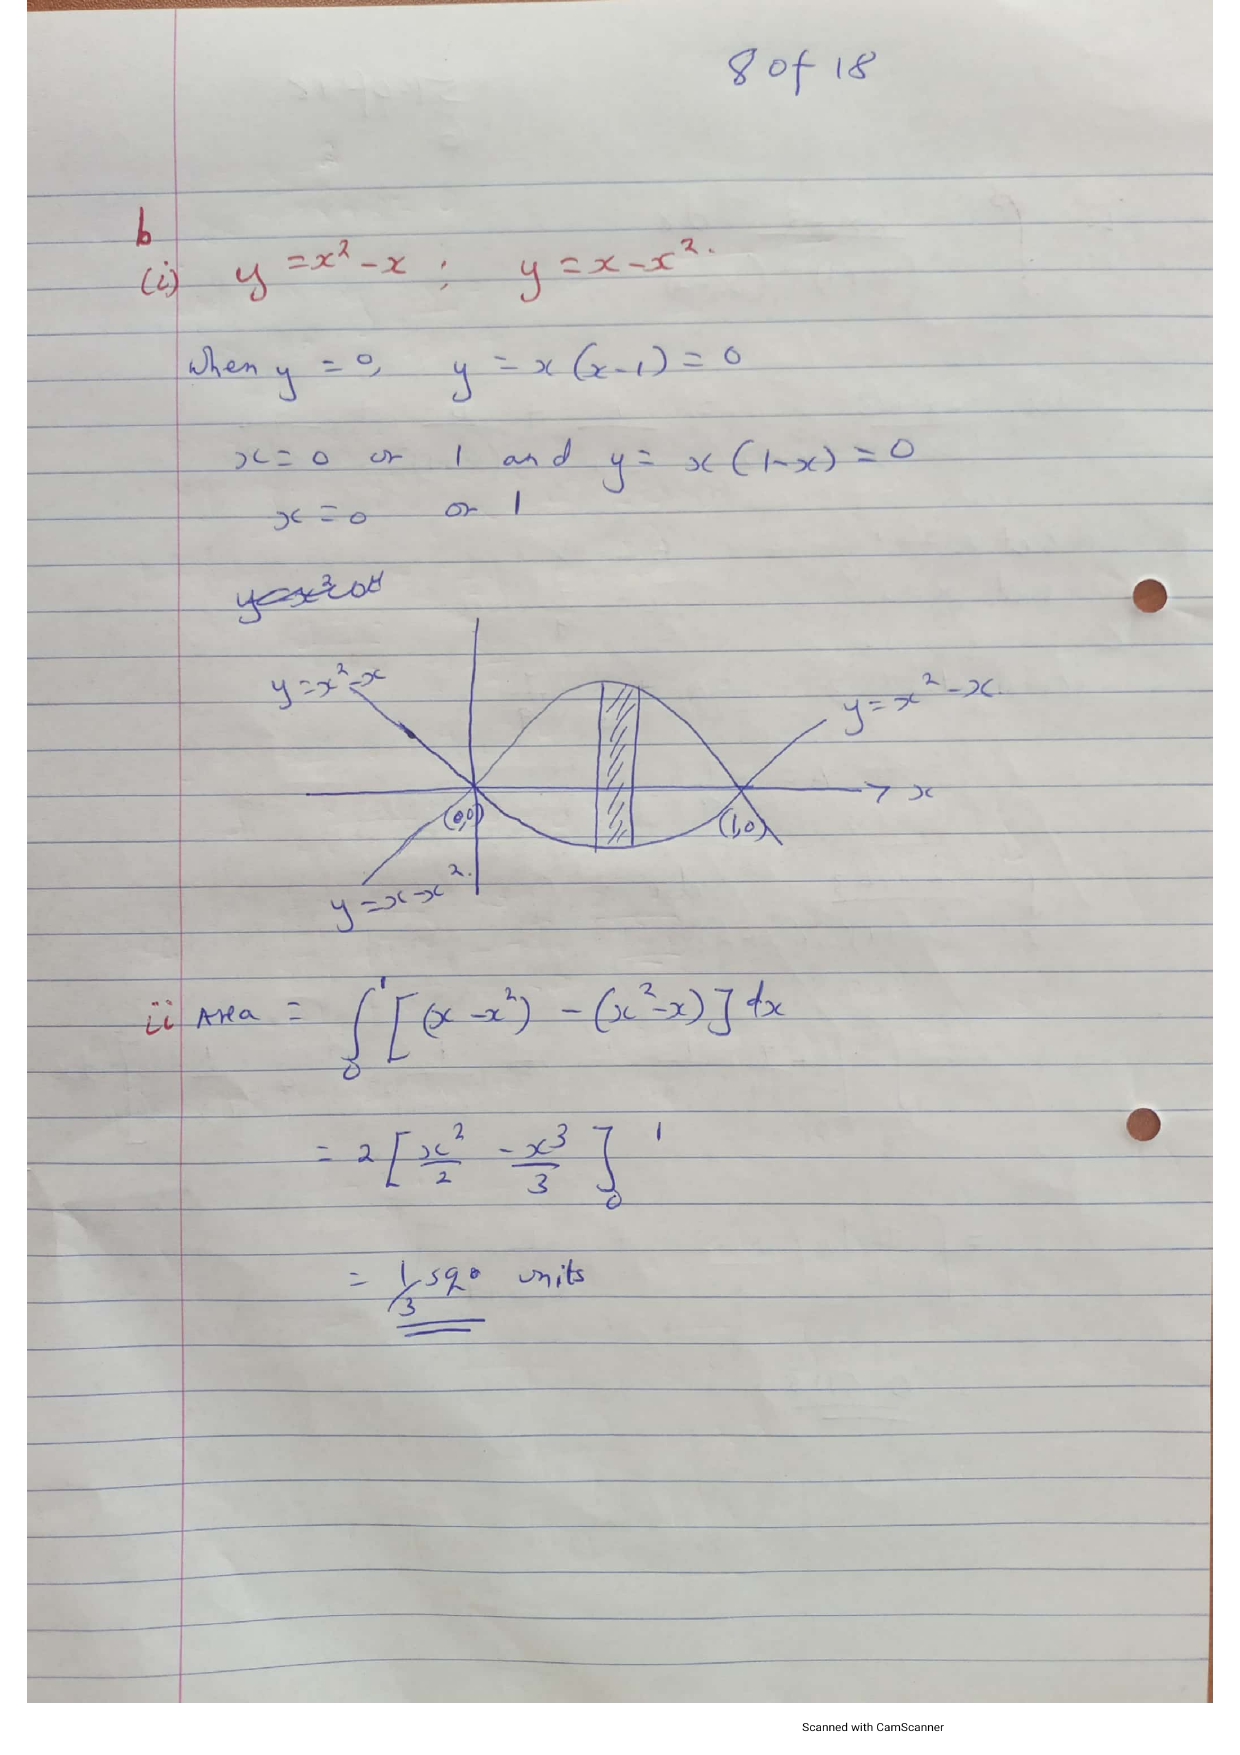 8 of 18
b
(i) y = x² - x ; y = x - x².
when y = 0, y = x(x-1) = 0
x = 0 or 1 and y = x(1-x) = 0
x = 0 or 1
y = x² - x
y = x² - x.
x
(0,0)
(1,0)
y = x - x².
ii Area = ∫₀¹ [(x - x²) - (x² - x)] dx
= 2 [x²/2 - x³/3]₀¹
= 1/3 sq. units
Scanned with CamScanner